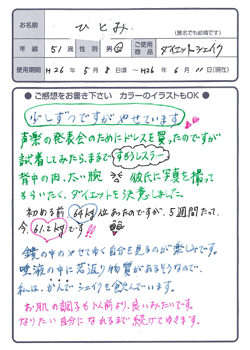 お名前
ひとみ
(匿名でも結構です)
年齢 51歳 性別 男・女 ご使用商品 ダイエットシェイク
使用期間 H26年5月8日頃 〜 H26年6月11日(現在)
●ご感想をお書き下さい カラーのイラストもOK●
少しずつですがやせています
声楽の発表会のためにドレスを買ったのですが
試着してみたら、まるで女子プロレスラー
背中の肉、太い腕 彼氏に写真を撮って
もらいたく、ダイエットを決意しました。
初める前64kg位あったのですが、5週間たって、
今61.2kgです!!
鏡の中のやせてゆく自分を見るのが楽しみです。
唾液の中に若返り物質があるそうなので、
私は、かんでシェイクを飲んでいます。
お肌の調子も以前より、良いみたいです。
なりたい自分になれるまで続けてゆきます。